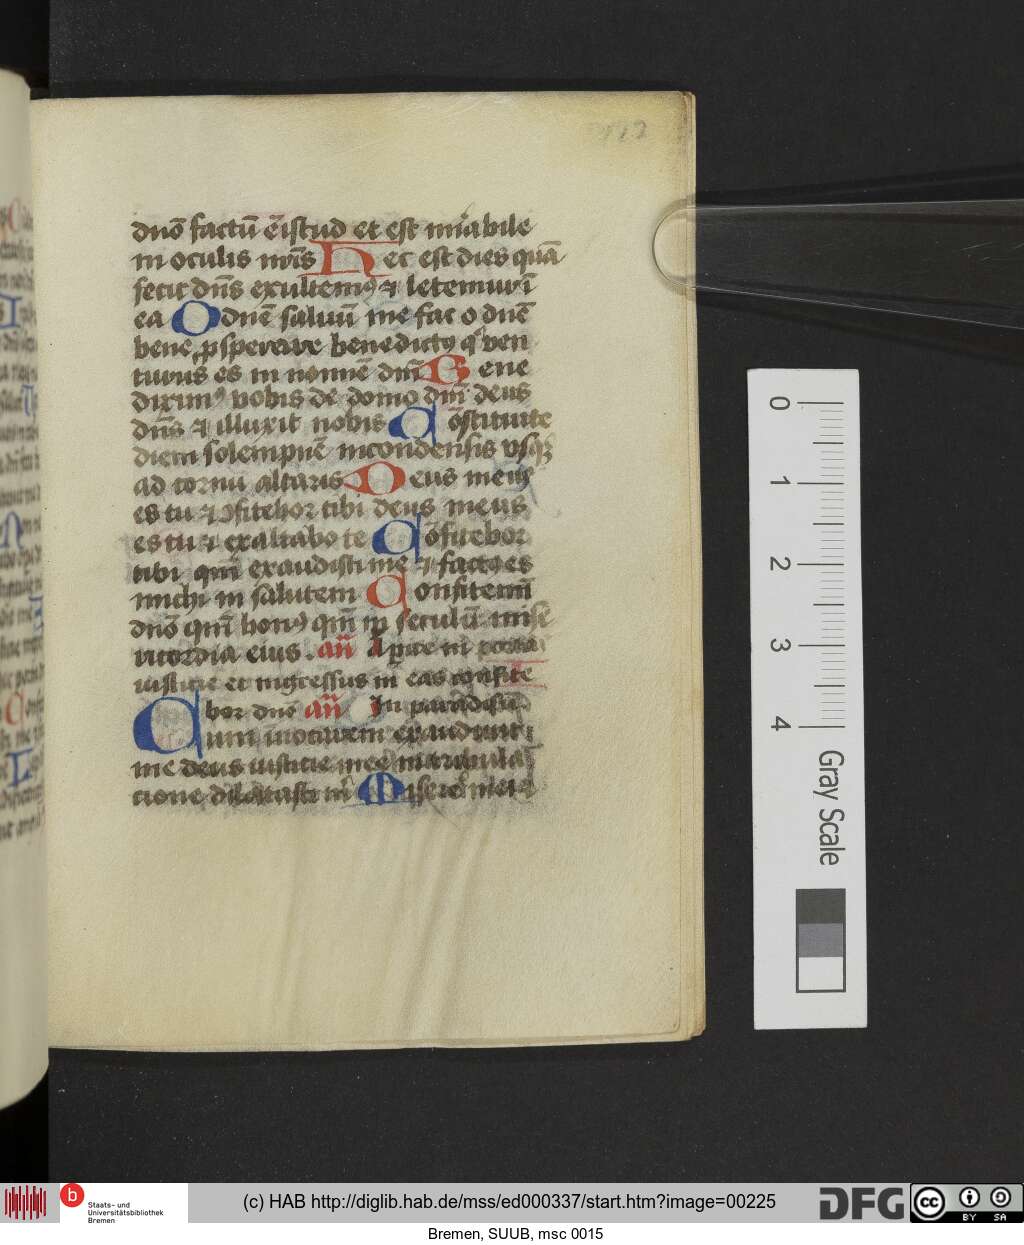 dnō factū ē istud et est mirabile
in oculis nr̄is Hec est dies quā
fecit dn̄s exultemꝰ ⁊ letemur ī
ea O dnē saluū me fac o dnē
bene ꝓsperare benedictꝰ qͥ ven
turus es in nomīe dn̄i Bene
diximꝰ vobis de domo dn̄i deus
dn̄s ⁊ illuxit nobis Cōstituite
diem solempnē in condensis vsqꝫ
ad cornu altaris Deus meus
es tu ⁊ ꝯfitebor tibi deus meus
es tu ⁊ exaltabo te Cōfitebor
tibi qm̄ exaudisti me ⁊ factꝰ es
michi in salutem Confitemī
dnō qm̄ bonꝰ qm̄ in seculū mise
ricordia eius . an̄ Aperite m̄ portas
iusticie et ingressus in eas confite
bor dnō an̄ In paradisū
Cum inuocarem exaudiuit
me deus iusticie mee in tribula
cione dilatasti m̄ Miserere mei ⁊
0
1
2
3
4
Gray Scale
b
Staats- und
Universitätsbibliothek
Bremen
(c) HAB http://diglib.hab.de/mss/ed000337/start.htm?image=00225
DFG
cc
BY SA
Bremen, SUUB, msc 0015